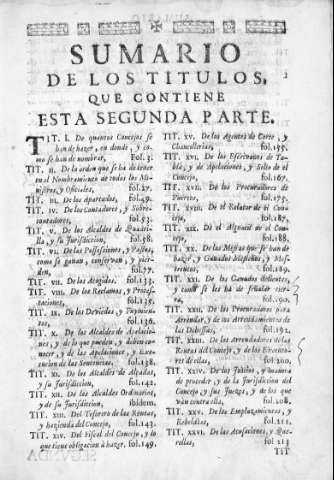 SUMARIO
DE LOS TITULOS,
QUE CONTIENE
ESTA SEGUNDA PARTE.
TIT. I. De quantos Concejos se
han de hazer, en donde, y co-
mo se han de nombrar, Fol. 3.
TIT. II. De la orden que se ha de tener
en el Nombramiento de todos los Mi-
nistros, y Oficiales, fol.27.
TIT. III. De los Apartados, fol.49.
TIT. IV. De los Contadores, y Sobre-
contadores, fol.53.
TIT. V. De los Alcaldes de Quadri-
lla, y su Jurisdiccion, fol.58.
TIT. VI. De las Possessiones, y Pastos,
como se ganan, conservan, y pier-
den, fol.77.
TIT. VII. De los Acogidos. fol.133.
TIT. VIII. De los Reclamos, y Protes-
taciones, fol.135.
TIT. IX. De los Desvíedos, y Puymien-
tos, fol.136.
TIT. X. De los Alcaldes de Apelacio-
nes, y de lo que pueden, y deben co-
nocer, y de las Apelaciones, y Execu-
cion de las Sentencias, fol.138.
TIT. XI. De los Alcaldes de Alçadas,
y su Jurisdiccion, fol.142.
TIT. XII. De los Alcaldes Ordinarios,
y de su Jurisdiccion, ibidem.
TIT. XIII. Del Tesorero de las Rentas,
y hazienda del Concejo, fol.143.
TIT. XIV. Del Fiscal del Concejo, y lo
que tiene obligacion à hazer. fol.149.
TIT. XV. De los Agentes de Corte, y
Chancillerias, fol.155.
TIT. XVI. De los Escrivanos de Ta-
bla, y de Apelaciones, y Sello de el
Concejo, fol.167.
TIT. XVII. De los Procuradores de
Puertos, fol.175.
TIT. XVIII. De el Relator de el Con-
cejo, fol.187.
TIT. XIX. De el Alguacil de el Con-
cejo, fol.188.
TIT. XX. De las Mestas que se han de
hazer, y Ganados Mesteños, y Mos-
trencos, fol.189.
TIT. XXI. De los Ganados dolientes,
y como se les ha de señalar tier-
ra, fol.190.
TIT. XXII. De los Procuradores para
Arrendar, y de los Arrendamientos de
las Dehessas, fol.192.
TIT. XXIII. De los Arrendadores de las
Rentas del Concejo, y de los Escriva-
nos de ellas, fol.200.
TIT. XXIV. De los Juizios, y manera
de proceder, y de la Jurisdiccion del
Concejo, y sus Juezes, y de los que
ván contra ella, fol.208.
TIT. XXV. De los Emplazamientos, y
Rebeldias, fol.211.
TIT. XXVI. De las Acusaciones, y Que-
rellas, fol 213
TIT